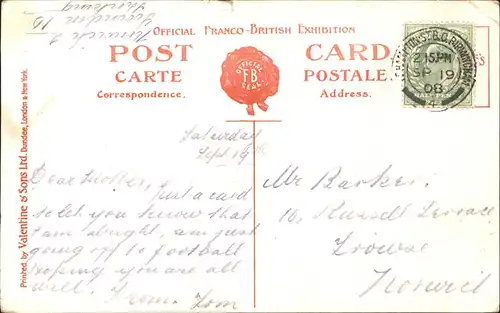 Official Franco-British Exhibition
POST CARD
CARTE POSTALE
Correspondence. Address.
OFFICIAL
F.B.
SEAL
2 15 PM
SP 19
08
4
Printed by Valentine & Sons Ltd. Dundee, London & New York.
Saturday
Sept 19th
Dear Mother, just a card
to let you know that
I am alright, am just
going off to football
hoping you are all
well. From Tom
Mr Barker.
10, Russell Terrace
Trowse
Norwich